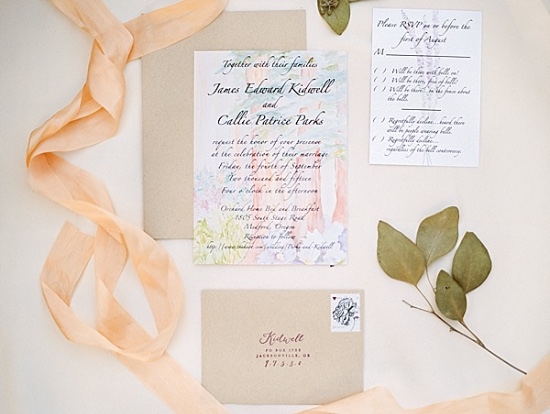 Together with their families
James Edward Kidwell
and
Callie Patrice Parks
request the honor of your presence
at the celebration of their marriage
Friday, the fourth of September
Two thousand and fifteen
Four o'clock in the afternoon
Orchard Home Bed and Breakfast
1805 South Stage Road
Medford, Oregon
Reception to follow
Please RSVP on or before the
first of August
M
( ) Will be there with bells on!
( ) Will be there, free of bells!
( ) Will be there... on the fence about
the bells.
( ) Regretfully decline... heard there
will be people wearing bells.
( ) Regretfully decline...
regardless of the bell controversy.
Kidwell
PO BOX 1733
JACKSONVILLE, OR
97530